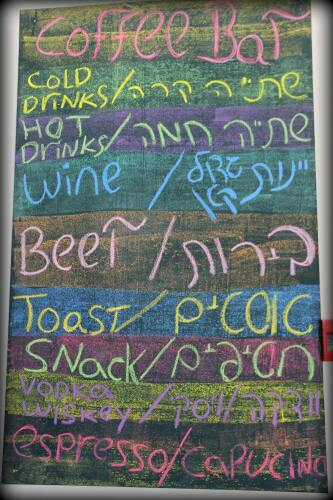 Coffee Bar
COLD DRINKS/שת"ה קרה
HOT DRINKS/שת"ה חמה
wine / יינות
Beer / בירות
Toast/טוסטים
SNack/חטיפים
VODKA WISKEY/וודקה/ויסקי
espresso/capucino